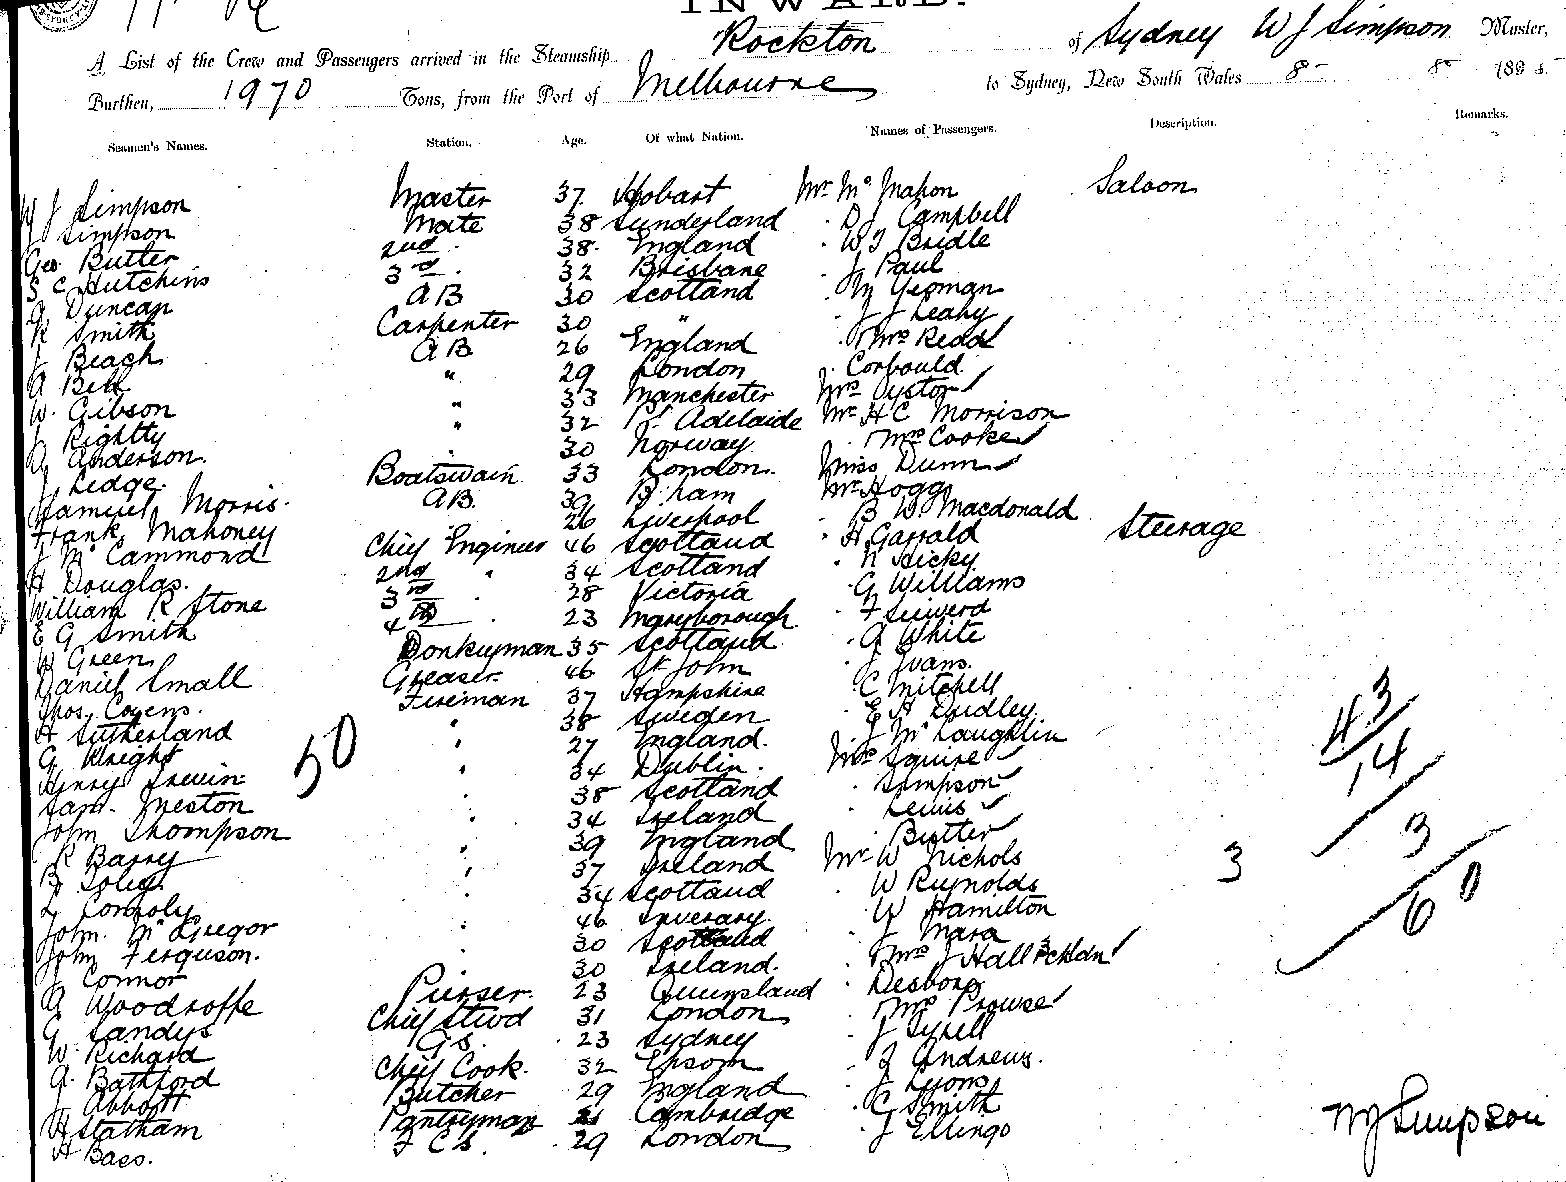 INWARD.
A List of the Crew and Passengers arrived in the Steamship Rockton of Sydney W J Simpson Master,
Burthen, 1970 Tons, from the Port of Melbourne to Sydney, New South Wales 8 - 8 - 1895
Seamen's Names. Station. Age. Of what Nation. Names of Passengers. Description. Remarks.
W J Simpson Master 37 Hobart Mr McMahon Saloon
J Simpson Mate 38 Sunderland " D J Campbell
Geo. Butter 2nd " 38 England " W J Bridle
S C Hutchins 3rd " 32 Brisbane " J Paul
A Duncan AB 30 Scotland " Wm Yeoman
R Smith Carpenter 30 " " J J Leahy
J Beach AB 26 England " Mrs Redd
A Bell " 29 London " Corbould
W. Gibson " 33 Manchester Mrs Oystor
J Rightty " 32 Pt Adelaide Mr H C Morrison
A Anderson. " 30 Norway " Mrs Cooke
J Ledge. Boatswain 33 London. Miss Dunn
Samuel Morris. AB. 39 B.ham Mr Hogg
Frank Mahoney 26 Liverpool " B W Macdonald
J McCammond Chief Engineer 46 Scotland " H Garrald Steerage
H Douglas. 2nd " 34 Scotland " N Hicky
William R Stone 3rd " 28 Victoria " G Williams
E G Smith 4th " 23 Maryborough " F
W Green Donkeyman 35 Scotland " G White
Daniel Small Greaser 46 St John " J Evans.
Thos. Cozens. Fireman 37 Hampshire " C Mitchell
H Sutherland " 38 Sweden " E H Dudley
G Wright " 27 England. " J McLaughlin
Henry Irwin " 34 Dublin. Mrs Squire
Sam. Meston " 38 Scotland " Simpson
John Thompson " 34 Ireland " Lewis
R Barry " 39 England " Butter
B Foley " 37 Ireland Mr W Nichols
L Connoly " 34 Scotland " W Reynolds
John McGregor " 46 Inverary. " W Hamilton
John Ferguson. " 30 Scotland " J Mara
J Connor " 30 Ireland. " Mrs J Hall 3 chldn
A Woodroffe Purser. 23 Queensland " Desboro
G Sandys Chief Stwd 31 London " Mrs Prowse
W. Richard G S. 23 Sydney " J Tyrell
A. Bathford Chief Cook. 32 Epsom " J Andrews.
J Abbott Butcher 29 England " J Lyons
W Statham Pantryman 21 Cambridge " C Smith
H Bass. F C S. 29 London " J Ellingo
50
43
14
3
3
60
W J Simpson